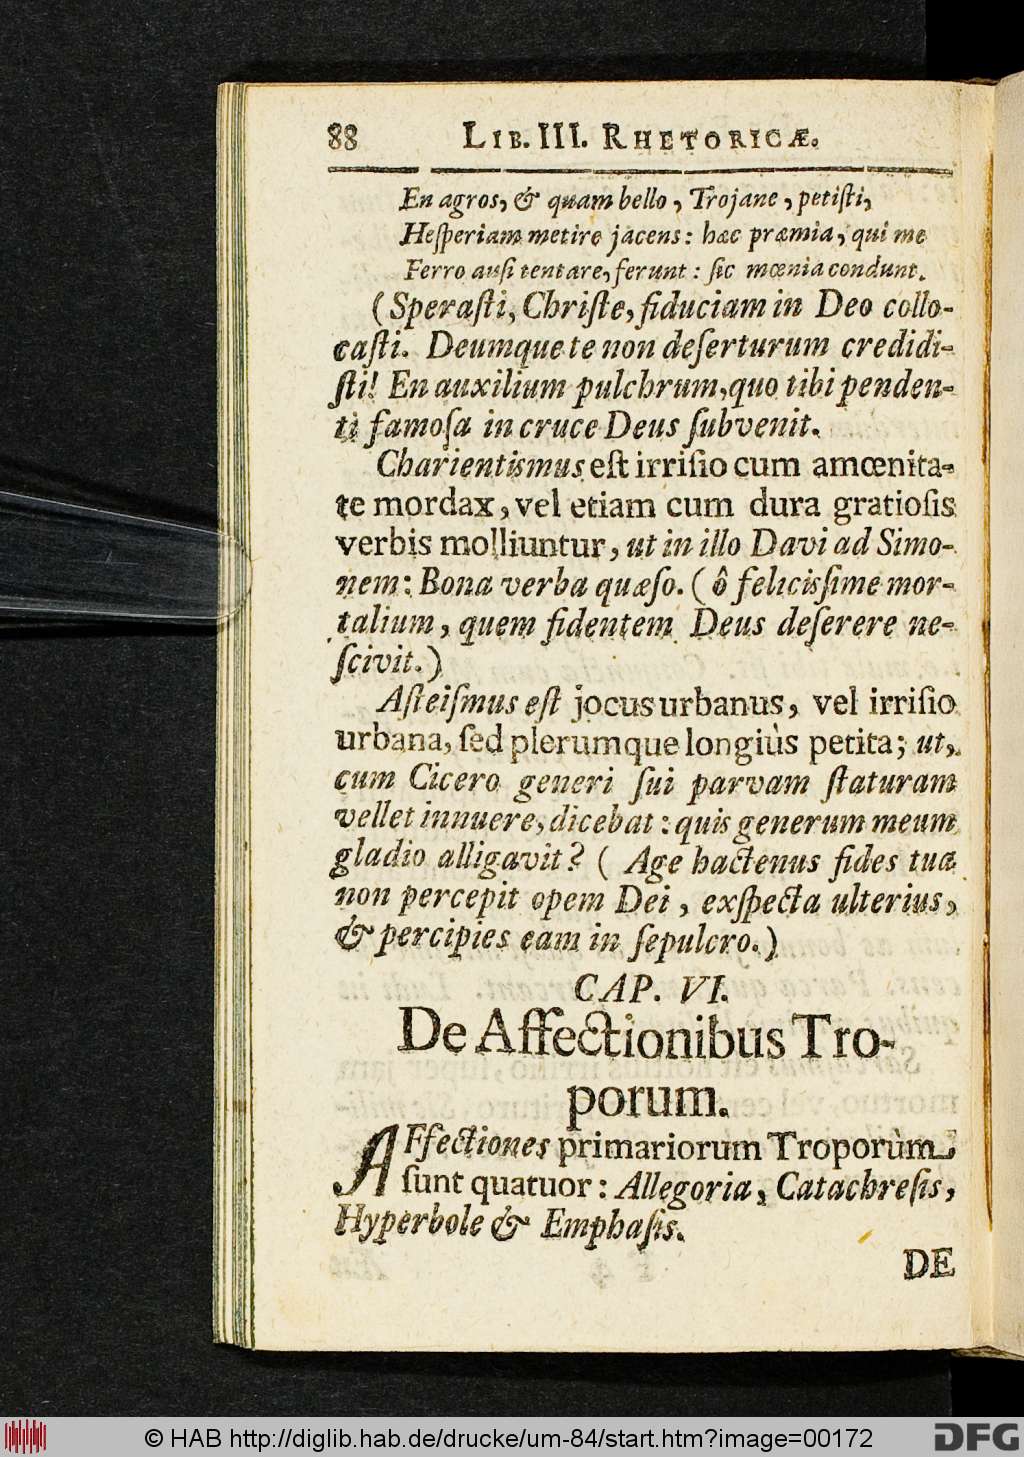 88 LIB. III. RHETORICÆ.
En agros, & quam bello, Trojane, petiſti,
Heſperiam metire jacens: hæc præmia, qui me
Ferro auſi tentare, ferunt: ſic mœnia condunt.
(Speraſti, Chriſte, fiduciam in Deo collo-
caſti. Deumque te non deſerturum credidi-
ſti! En auxilium pulchrum, quo tibi penden-
ti famoſa in cruce Deus ſubvenit.
Charientismus eſt irriſio cum amœnita-
te mordax, vel etiam cum dura gratioſis
verbis molliuntur, ut in illo Davi ad Simo-
nem: Bona verba quæſo. (ô felicisſime mor-
talium, quem fidentem Deus deſerere ne-
ſcivit.)
Aſteiſmus eſt jocus urbanus, vel irriſio
urbana, ſed plerumque longiùs petita; ut,
cum Cicero generi ſui parvam ſtaturam
vellet innuere, dicebat: quis generum meum
gladio alligavit? (Age hactenus fides tua
non percepit opem Dei, exſpecta ulterius,
& percipies eam in ſepulcro.)
CAP. VI.
De Affectionibus Tro-
porum.
AFfectiones primariorum Troporùm
ſunt quatuor: Allegoria, Catachreſis,
Hyperbole & Emphaſis.
DE
© HAB http://diglib.hab.de/drucke/um-84/start.htm?image=00172
DFG